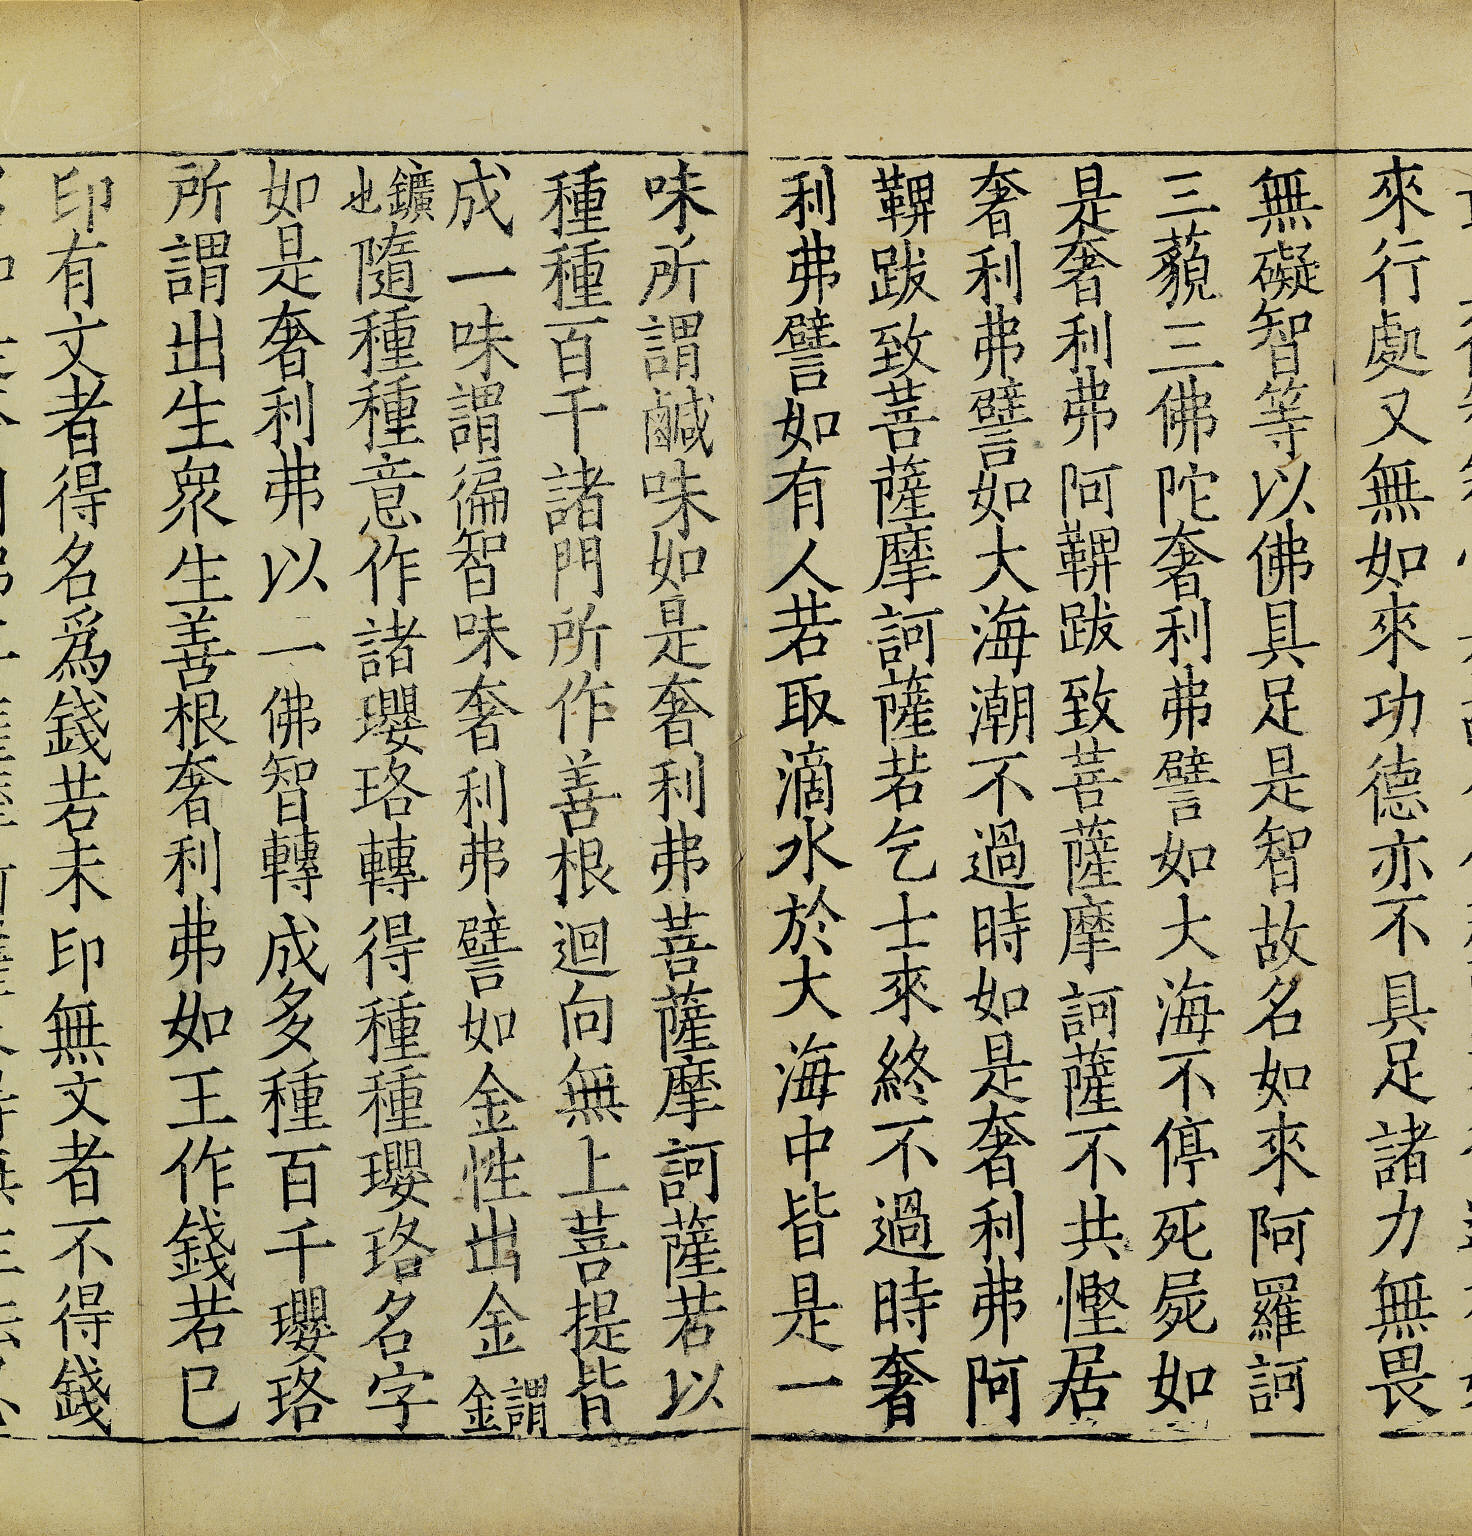 來行處又無如來功德亦不具足諸力無畏
無礙智等以佛具足是智故名如來阿羅訶
三藐三佛陀奢利弗譬如大海不停死屍如
是奢利弗阿鞞跋致菩薩摩訶薩不共慳居
奢利弗譬如大海潮不過時如是奢利弗阿
鞞跋致菩薩摩訶薩若乞士來終不過時奢
利弗譬如有人若取滴水於大海中皆是一
味所謂鹹味如是奢利弗菩薩摩訶薩若以
種種百千諸門所作善根迴向無上菩提皆
成一味謂徧智味奢利弗譬如金性出金謂金
鑛也隨種種意作諸瓔珞轉得種種瓔珞名字
如是奢利弗以一佛智轉成多種百千瓔珞
所謂出生眾生善根奢利弗如王作錢若已
印有文者得名爲錢若未印無文者不得錢